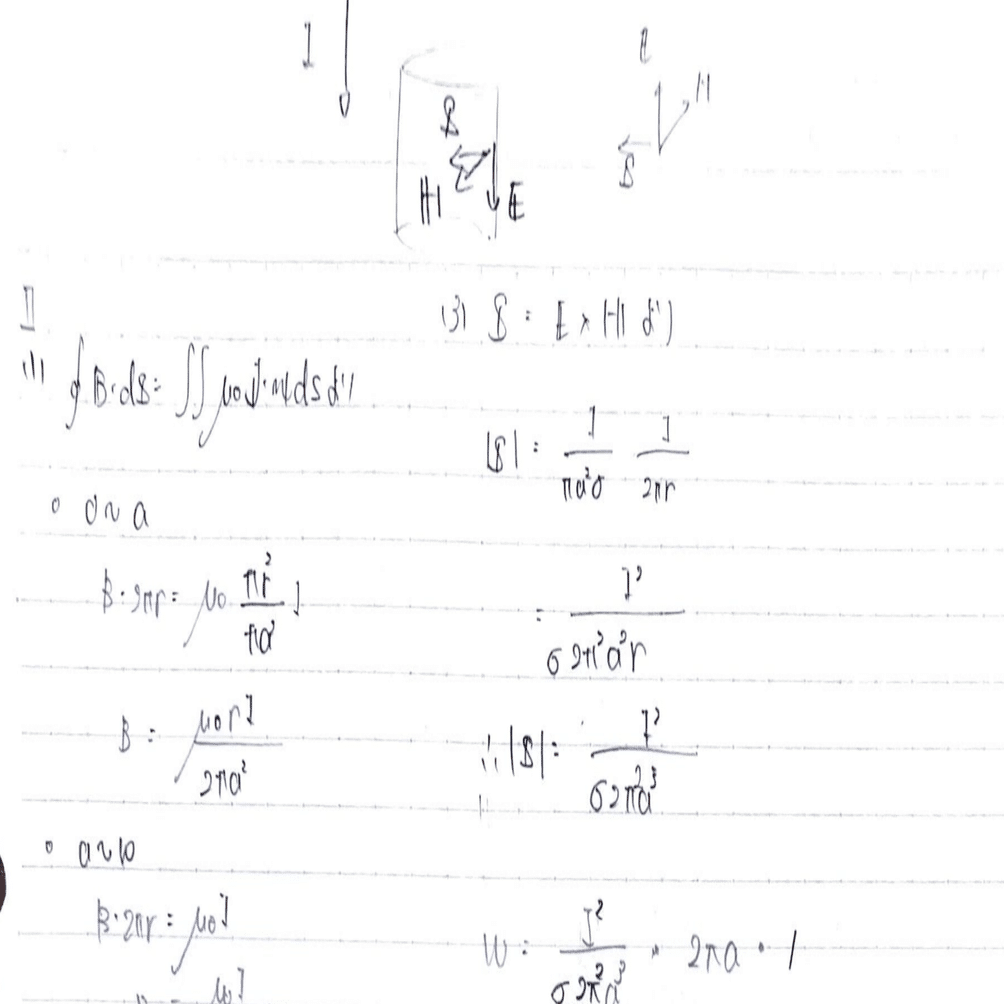 I
S
H
E
E
H
S
II
(1) ∮B·dS = ∬μ₀J·n dS より
○ 0〜a
B·2πr = μ₀ πr²/πa² I
B = μ₀rI/2πa²
○ a〜b
B·2πr = μ₀I
(3) S = E × H より
|S| = I/πa²σ I/2πr
= I²/σ2π²a²r
∴ |S| = I²/σ2π²a³
W = I²/σ2π²a³ · 2πa · 1